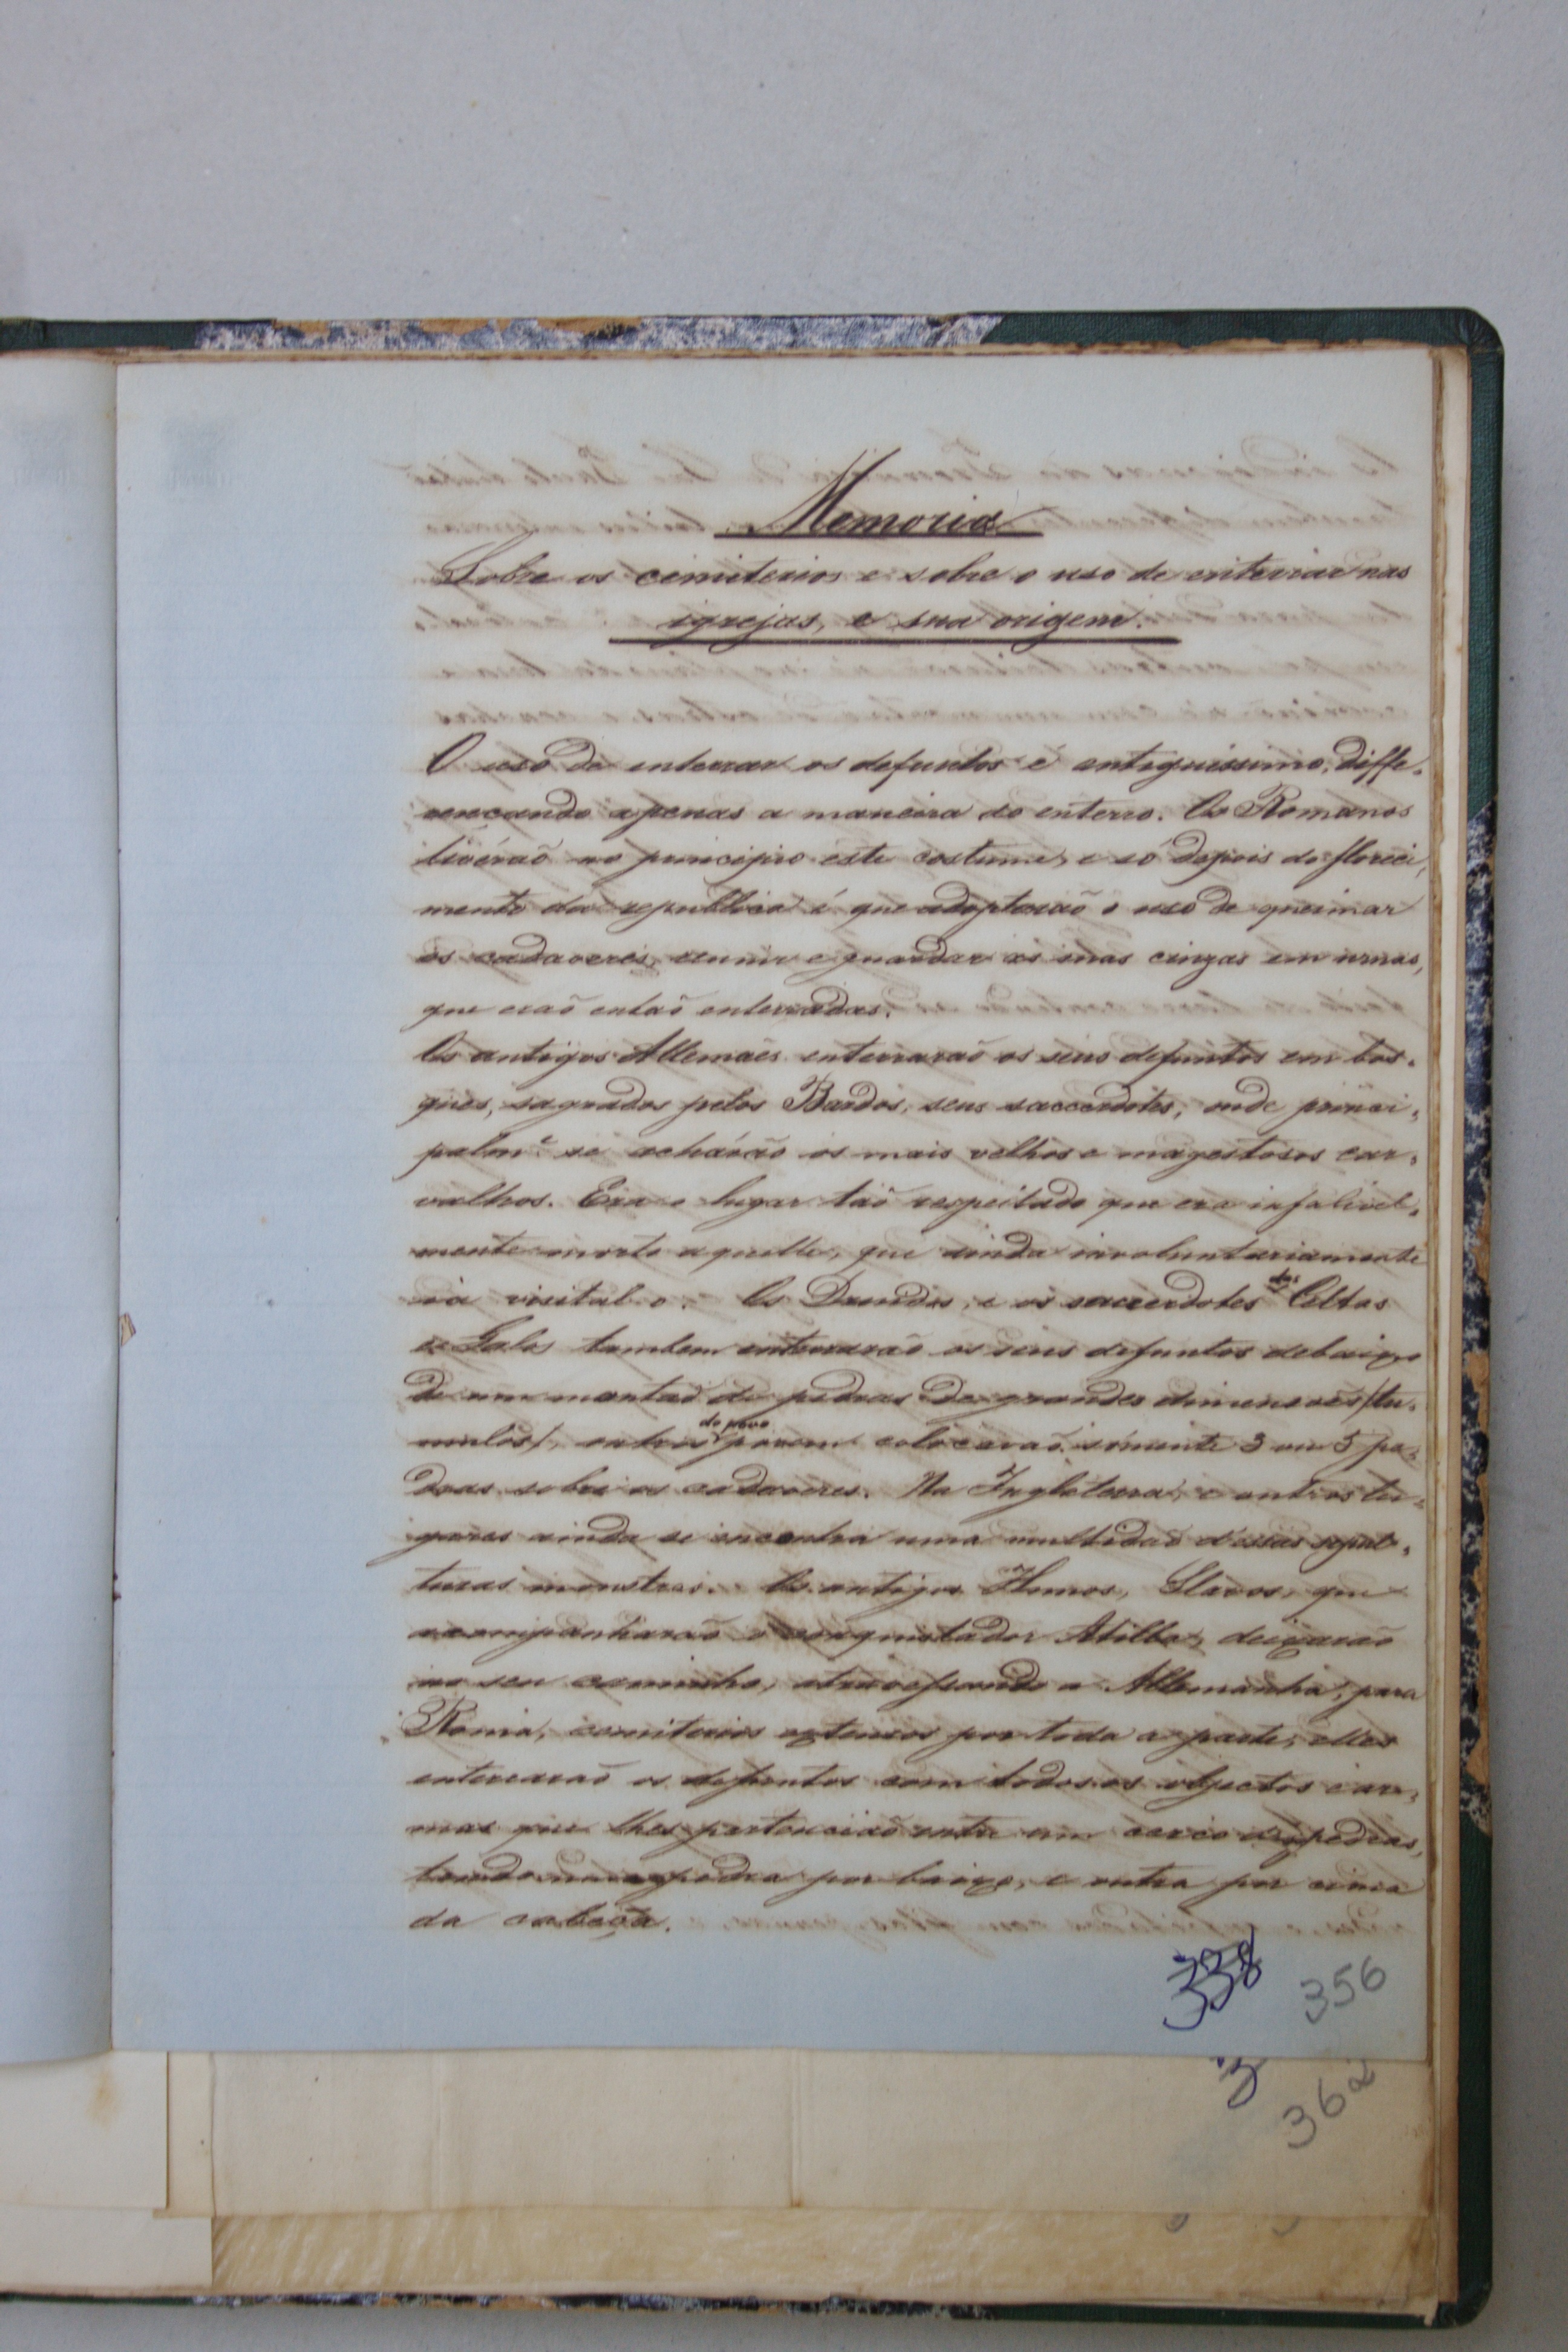 Memoria
Sobre os cemiterios e sobre o uso de enterrar nas
igrejas, e sua origem.
O uso de enterrar os defuntos é antiquissimo, diffe-
rencando apenas a maneira do enterro. Os Romanos
tivéraõ no principio este costume, e só depois do floreci-
mento da republica é que adoptaraõ o uso de queimar
os cadaveres, reunir e guardar as suas cinzas em urnas,
que eraõ entaõ enterradas.
Os antigos Allemães enterraraõ os seus defuntos em bos-
ques, sagrados pelos Bardos, seus saccerdotes, onde princi-
palmᵉ se achávaõ os mais velhos e magestosos car-
valhos. Era o lugar taõ respeitado que era infalivel-
mente morto aquelle, que ainda involuntariamente
ia visital-o. Os Druidas, e os sacerdotes dos Celtas
e Galos tambem enterraraõ os seus defuntos debaixo
de um montaõ de pedras de grandes dimensoẽs /tu-
mulos/, outros do povo porem colocavaõ sómente 3 ou 5 pe-
dras sobre os cadaveres. Na Inglaterra, e outros lu-
gares ainda se encontra uma multidaõ d'essas sepul-
turas monstras. Os antigos Hunnos, Slavos, que
acompanharaõ o conquistador Atilla, deixaraõ
no seu caminho, atravessando a Allemanha, para
Roma, cemiterios extensos por toda a parte; elles
enterraraõ os defuntos com todos os objectos e ar-
mas que lhes pertenciaõ entre um cerco de pedras,
tendo uma pedra por baixo, e outra por cima
da cabeça.
338 356
3 362